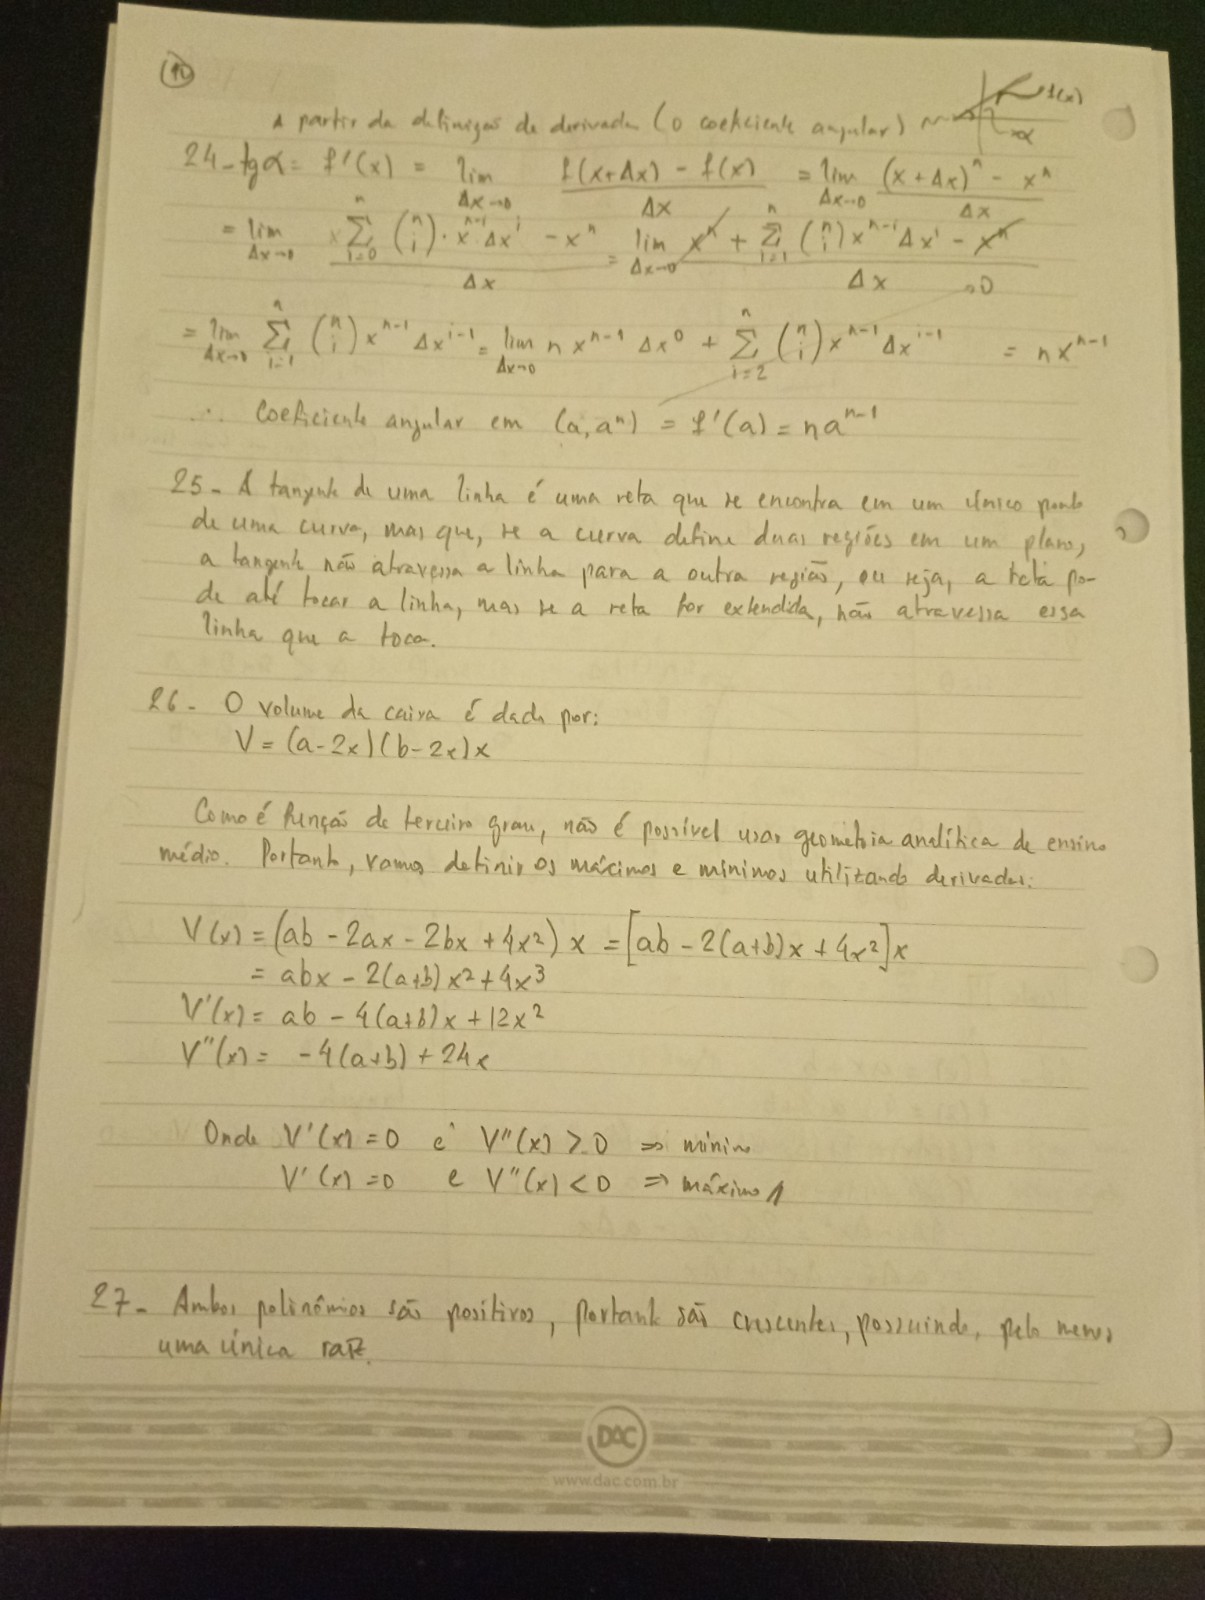 10
A partir da definição de derivada (o coeficiente angular) f(x)
α
24 - tgα = f'(x) = lim Δx→0 (f(x+Δx) - f(x))/Δx = lim Δx→0 ((x+Δx)^n - x^n)/Δx
= lim Δx→0 (Σ_{i=0}^{n} (n i) · x^{n-i} Δx^i - x^n)/Δx = lim Δx→0 (x^n + Σ_{i=1}^{n} (n i) x^{n-i} Δx^i - x^n)/Δx
→0
= lim Δx→0 Σ_{i=1}^{n} (n i) x^{n-1} Δx^{i-1} = lim Δx→0 n x^{n-1} Δx^0 + Σ_{i=2}^{n} (n i) x^{n-1} Δx^{i-1} = n x^{n-1}
∴ Coeficiente angular em (a, a^n) = f'(a) = na^{n-1}
25 - A tangente de uma linha é uma reta que se encontra em um único ponto
de uma curva, mas que, se a curva define duas regiões em um plano,
a tangente não atravessa a linha para a outra região, ou seja, a reta po-
de até tocar a linha, mas se a reta for extendida, não atravessa essa
linha que a toca.
26 - O volume da caixa é dado por:
V = (a-2x)(b-2x)x
Como é função de terceiro grau, não é possível usar geometria analítica de ensino
médio. Portanto, vamos definir os máximos e mínimos utilizando derivadas:
V(x) = (ab - 2ax - 2bx + 4x²) x = [ab - 2(a+b)x + 4x²]x
= abx - 2(a+b)x² + 4x³
V'(x) = ab - 4(a+b)x + 12x²
V''(x) = -4(a+b) + 24x
Onde V'(x) = 0 e V''(x) > 0 ⇒ mínimo
V'(x) = 0 e V''(x) < 0 ⇒ máximo
27 - Ambos polinômios são positivos, portanto são crescentes, possuindo, pelo menos
uma única raiz.
DAC
www.dac.com.br